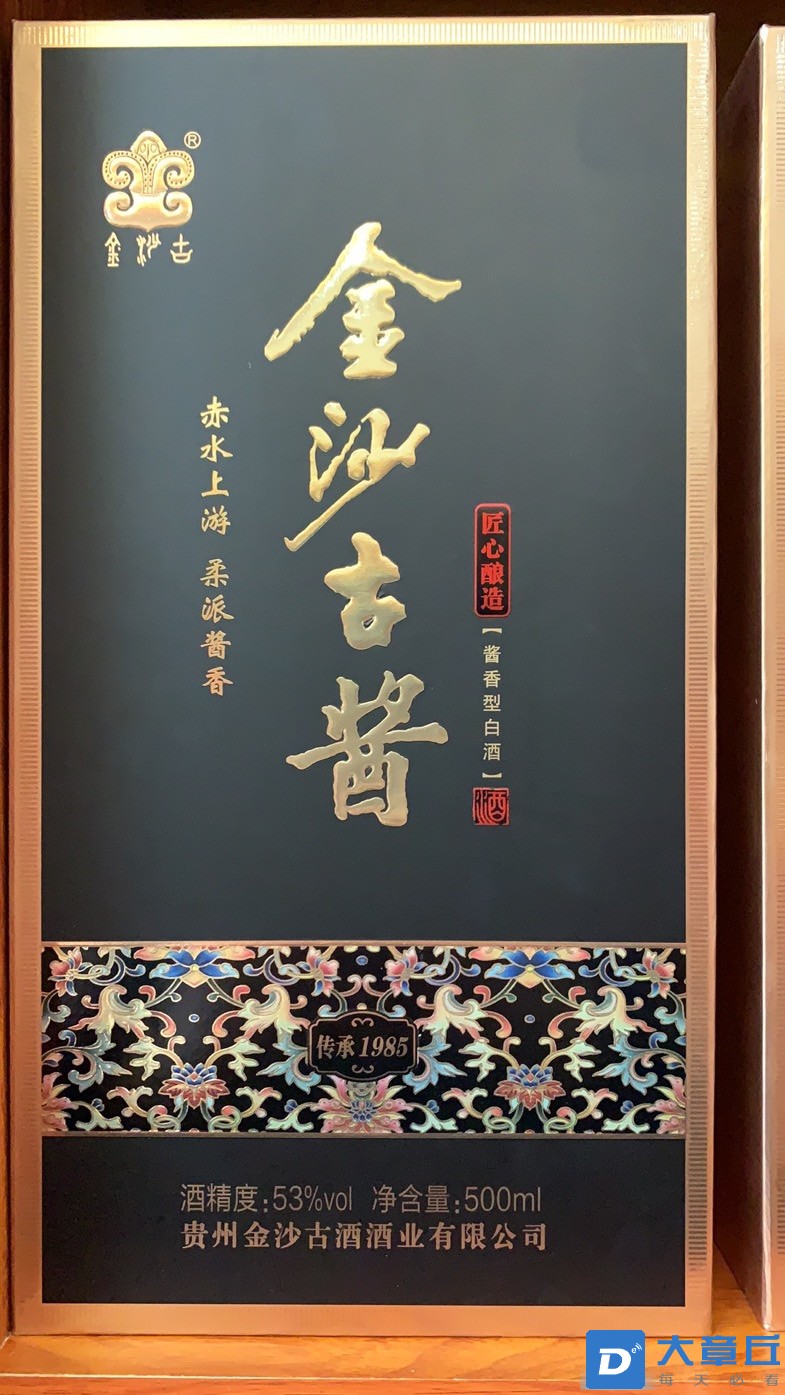 ®
金沙古
金沙古酱
赤水上游 柔派酱香
匠心酿造
【酱香型白酒】
酒
传承1985
酒精度:53%vol 净含量:500ml
贵州金沙古酒酒业有限公司
大章丘
每天必看